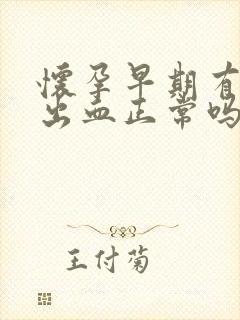 懷孕早期有
出血正常吗
王付菊